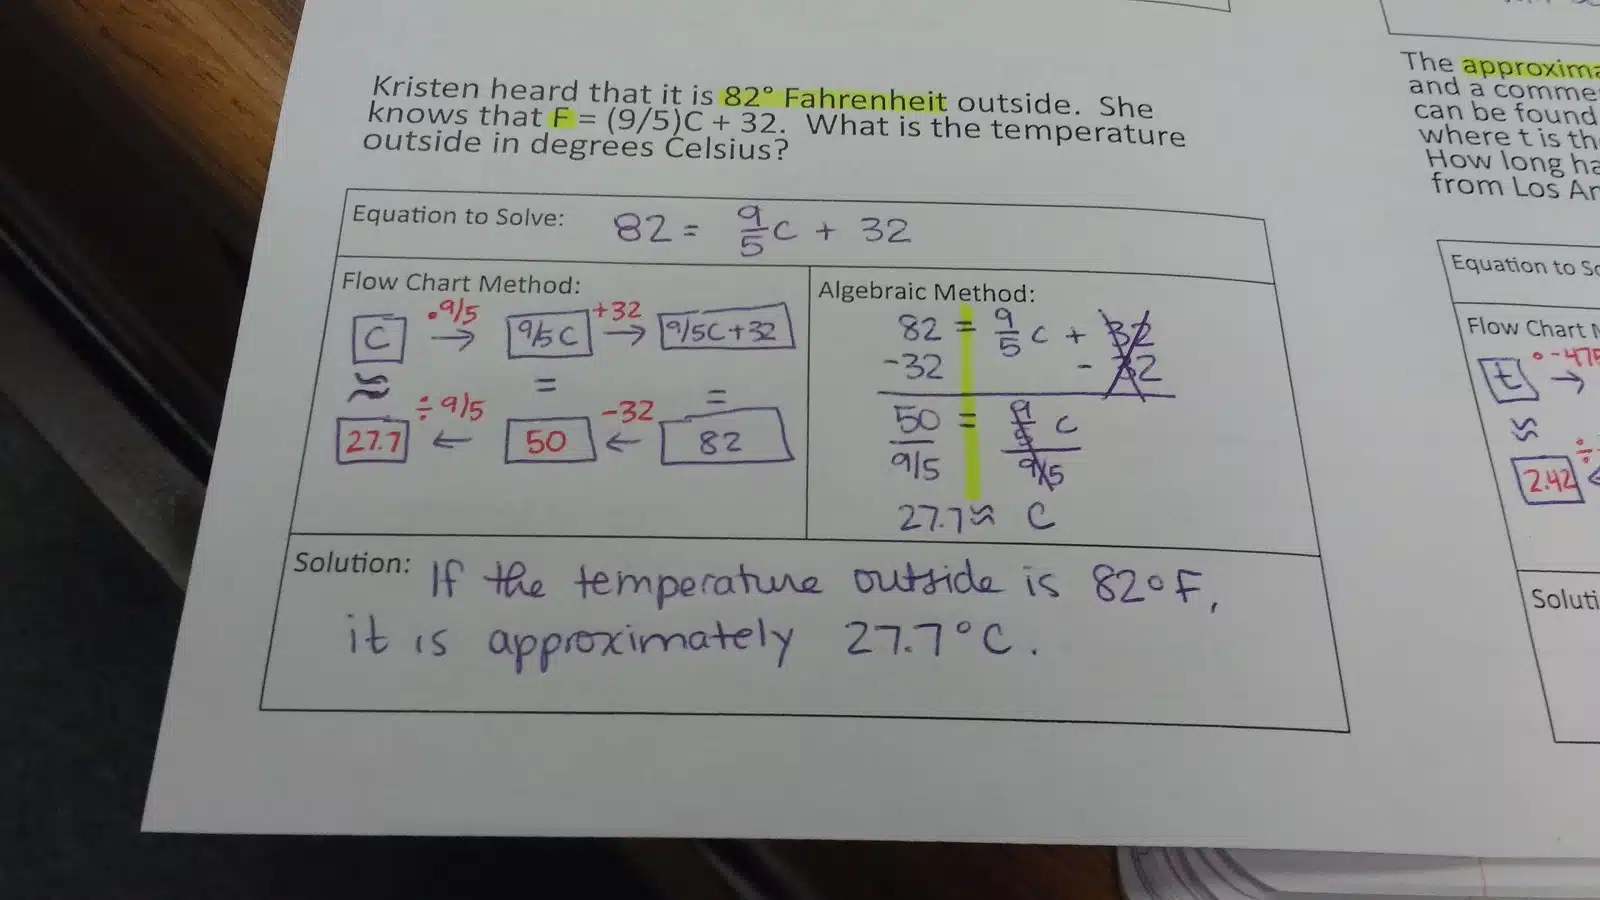 Kristen heard that it is 82° Fahrenheit outside. She
knows that F = (9/5)C + 32. What is the temperature
outside in degrees Celsius?
Equation to Solve: 82 = 9/5 C + 32
Flow Chart Method:
·9/5 +32
C → 9/5 C → 9/5C+32
≈ = =
÷ 9/5 -32
27.7 ← 50 ← 82
Algebraic Method:
82 = 9/5 C + 32
-32 - 32
50 = 9/5 C
9/5 9/5
27.7 ≈ C
Solution: If the temperature outside is 82°F,
it is approximately 27.7°C.
The
and a
can be found
where t is
How long
from Los
Equation to
Flow Chart
t →
≈
2.42